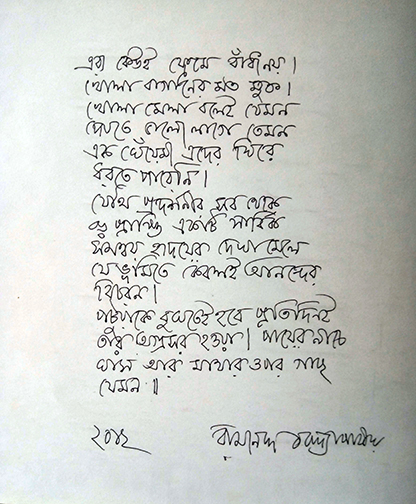 এরা কেউই ফ্রেমে বাঁধা নয়।
খোলা বাগানের মত মুক্ত।
খোলা মেলা বলেই যেমন
দেখতে ভালো লাগে তেমন
এক ঘেঁয়েমী এদের ঘিরে
ধরতে পারেনি।
যৌথ প্রদর্শনীর সব থেকে
বড় প্রাপ্তি একটি সার্বিক
সমন্বয় হৃদয়ের দেখা মেলে
যে ভূমিতে কেবলই আনন্দের
বিচরন।
বুঝতেই হবে প্রতিদিনই
তাঁর অগ্রসর হওয়া। পায়ের নীচে
ঘাস আর মাথার ওপর গাছ
যেমন॥
২০১২